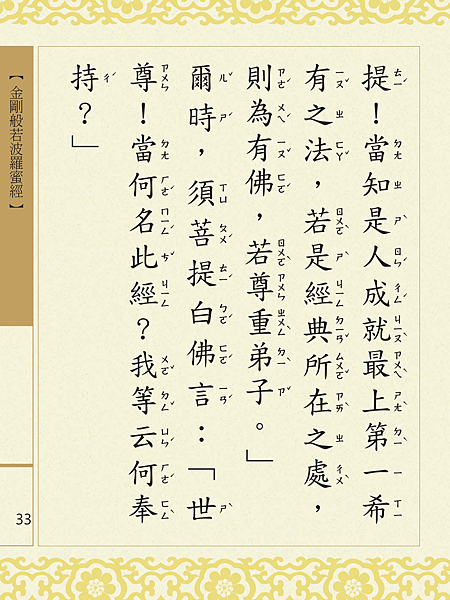 提！當知是人成就最上第一希
有之法，若是經典所在之處，
則為有佛，若尊重弟子。」
爾時，須菩提白佛言：「世
尊！當何名此經？我等云何奉
持？」
【金剛般若波羅蜜經】
33